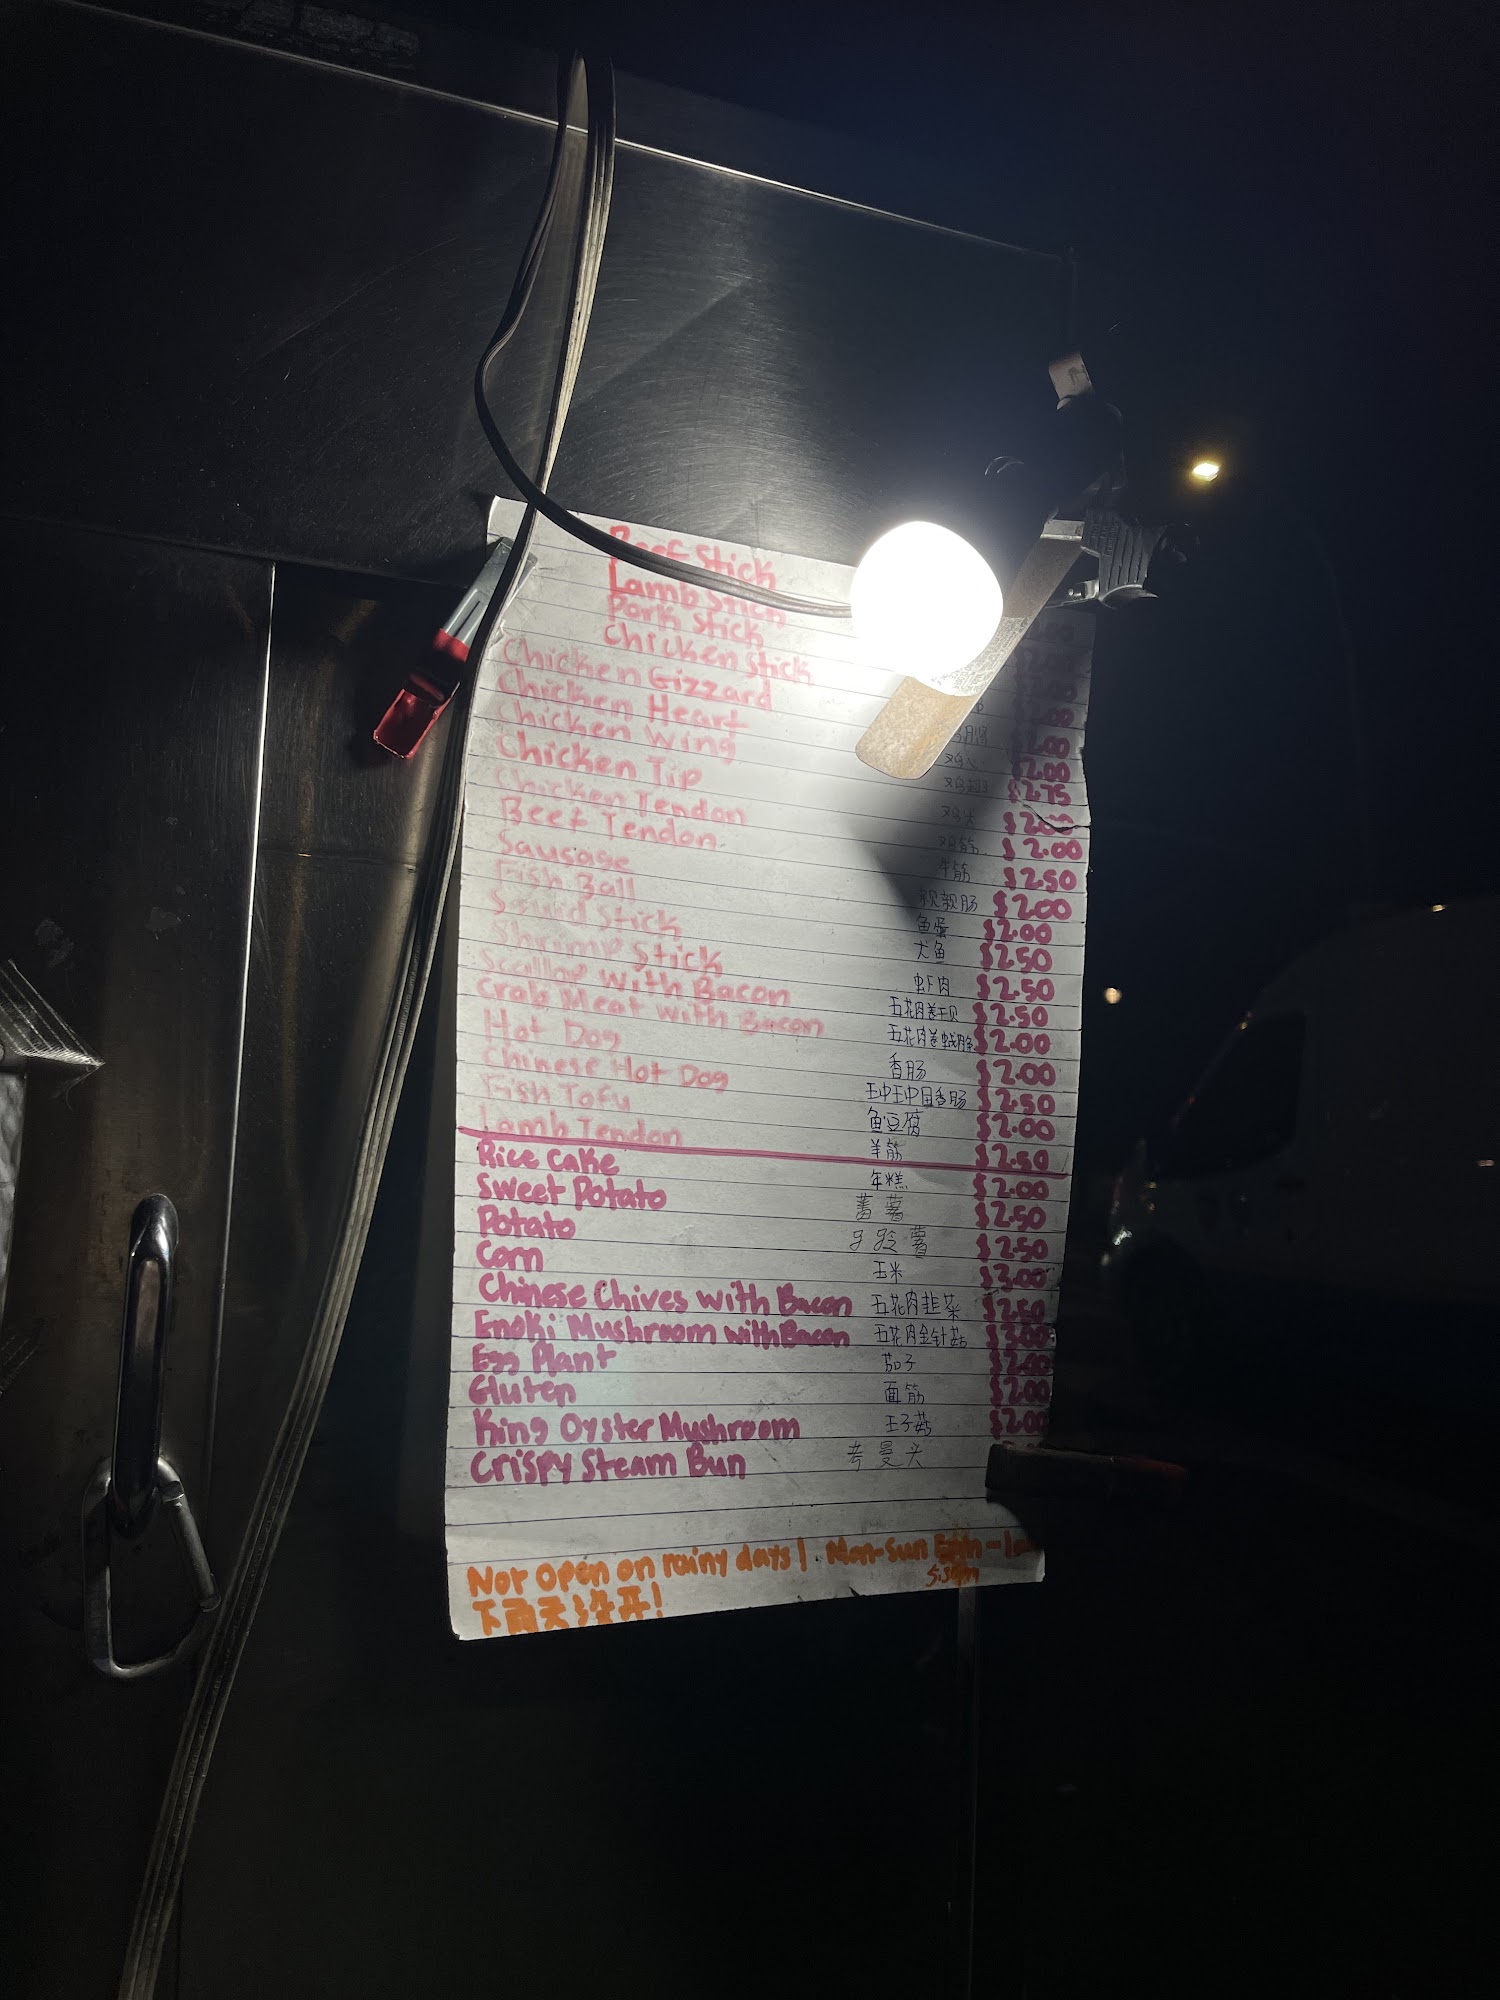 Beef Stick
Lamb Stick
Pork Stick
Chicken Stick
Chicken Gizzard
Chicken Heart 鸡心 $2.00
Chicken Wing 鸡翅 $2.75
Chicken Tip 鸡尖 $2.00
Chicken Tendon 鸡筋 $2.00
Beef Tendon 牛筋 $2.50
Sausage 亲亲肠 $2.00
Fish Ball 鱼蛋 $2.00
Squid Stick 尤鱼 $2.50
Shrimp Stick 虾肉 $2.50
Scallop With Bacon 五花肉卷干贝 $2.50
Crab Meat with Bacon 五花肉卷 $2.00
Hot Dog 香肠 $2.00
Chinese Hot Dog 香肠 $2.50
Fish Tofu 鱼豆腐 $2.00
Lamb Tendon 羊筋 $2.50
Rice Cake 年糕 $2.00
Sweet Potato 蕃薯 $2.50
Potato 薯 $2.50
Corn 玉米 $3.00
Chinese Chives with Bacon 五花肉韭菜 $2.50
Enoki Mushroom with Bacon 五花肉金针菇 $3.00
Egg Plant 茄子 $2.00
Gluten 面筋 $2.00
King Oyster Mushroom 王子菇 $2.00
Crispy Steam Bun 考曼头
Not open on rainy days! Mon-Sun
5:30pm
下雨天没开!